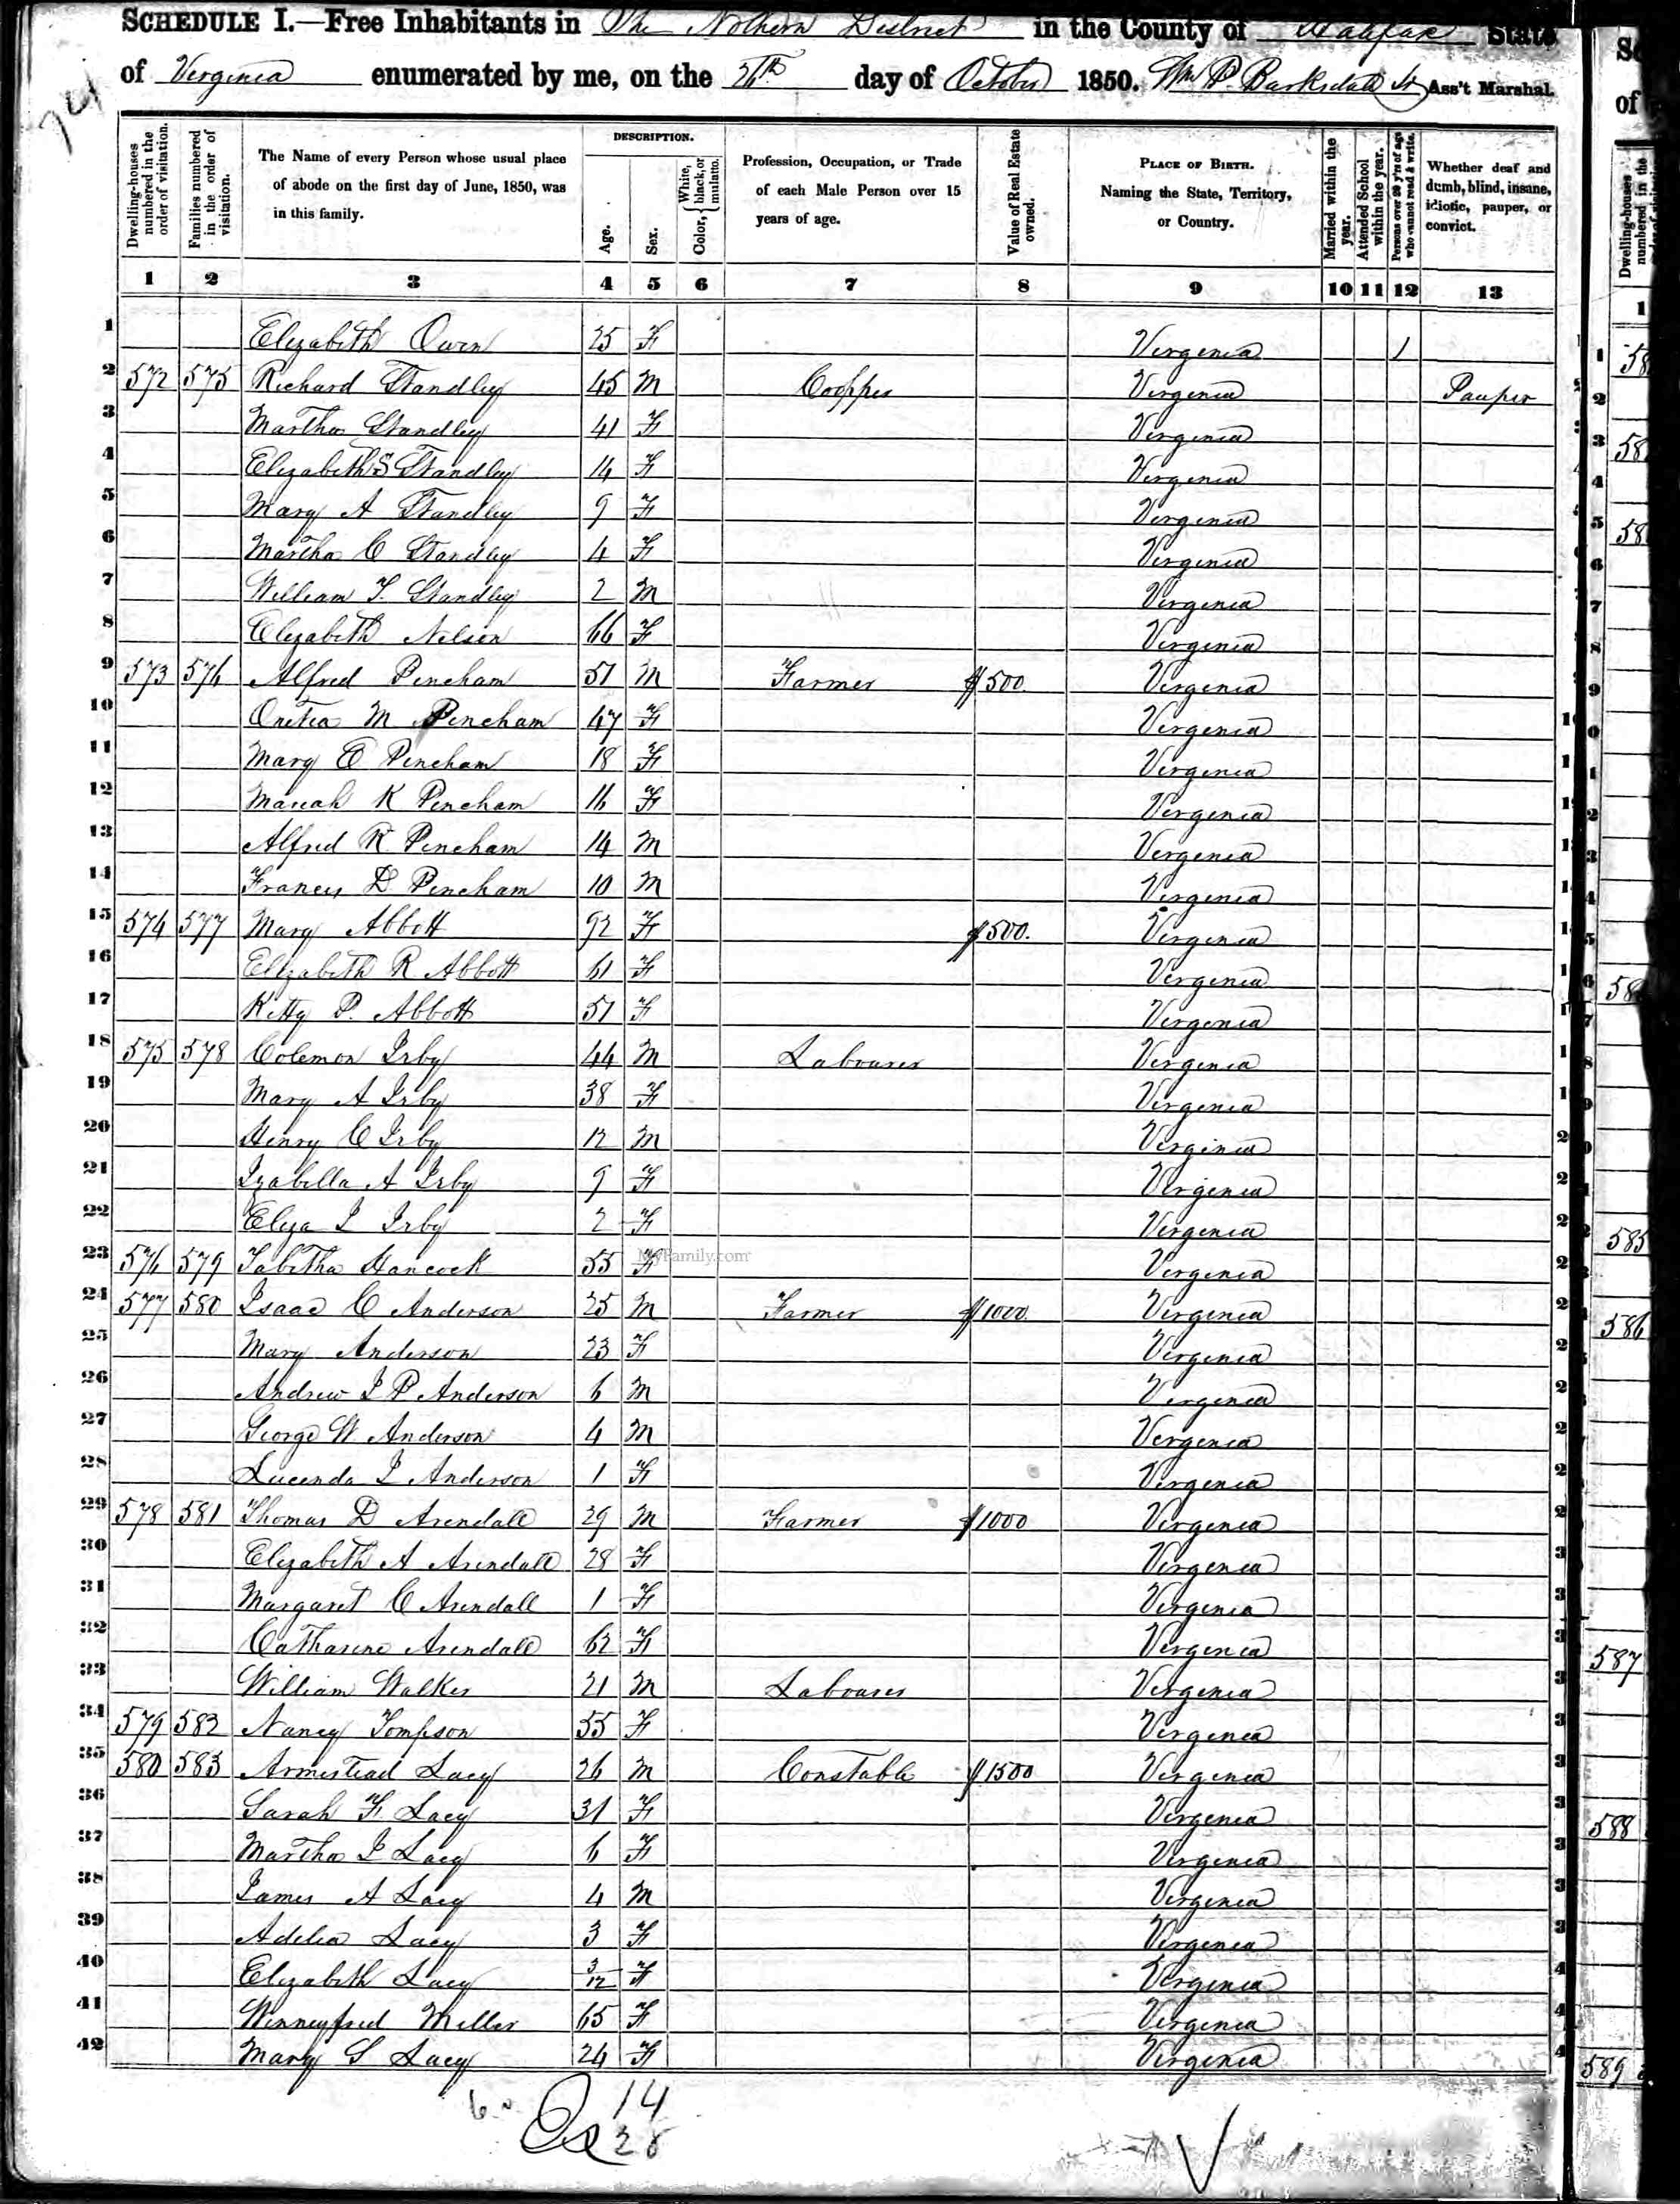 SCHEDULE I.—Free Inhabitants in The Nothern District in the County of Halifax State
of Virginia enumerated by me, on the 26th day of October 1850. Wm P. Barksdale Ass't Marshal.
Dwelling-houses numbered in the order of visitation.
Families numbered in the order of visitation.
The Name of every Person whose usual place of abode on the first day of June, 1850, was in this family.
DESCRIPTION.
Age.
Sex.
Color, { White, black, or mulatto.
Profession, Occupation, or Trade of each Male Person over 15 years of age.
Value of Real Estate owned.
PLACE OF BIRTH. Naming the State, Territory, or Country.
Married within the year.
Attended School within the year.
Persons over 20 y'rs of age who cannot read & write.
Whether deaf and dumb, blind, insane, idiotic, pauper, or convict.
1 2 3 4 5 6 7 8 9 10 11 12 13
1 Elizabeth Owen 25 F Virginia 1
2 572 575 Richard Standley 45 M Coopper Virginia Pauper
3 Martha Standley 41 F Virginia
4 Elizabeth S Standley 14 F Virginia
5 Mary A Standley 9 F Virginia
6 Martha C Standley 4 F Virginia
7 William T. Standley 2 M Virginia
8 Elizabeth Nelson 66 F Virginia
9 573 576 Alfred Pincham 51 M Farmer $500. Virginia
10 M Pincham 47 F Virginia
11 Mary E Pincham 18 F Virginia
12 Mariah K Pincham 16 F Virginia
13 Alfred R Pincham 14 M Virginia
14 Francis D Pincham 10 M Virginia
15 574 577 Mary Abbott 92 F $500. Virginia
16 Elizabeth R Abbott 61 F Virginia
17 Kitty P. Abbott 51 F Virginia
18 575 578 Colemon Irby 44 M Labourer Virginia
19 Mary A Irby 38 F Virginia
20 Henry C Irby 12 M Virginia
21 Izabella A Irby 9 F Virginia
22 Eliza J Irby 2 F Virginia
23 576 579 Tabitha Hancock 55 F MyFamily.com Virginia
24 577 580 Isaac C Anderson 25 M Farmer $1000. Virginia
25 Mary Anderson 23 F Virginia
26 Andrew J P Anderson 6 M Virginia
27 George W Anderson 4 M Virginia
28 Lucenda J Anderson 1 F Virginia
29 578 581 Thomas D Arendall 29 M Farmer $1000 Virginia
30 Elizabeth A Arendall 28 F Virginia
31 Margaret C Arendall 1 F Virginia
32 Catharine Arendall 62 F Virginia
33 William Walker 21 M Labourer Virginia
34 579 582 Nancy Tompson 55 F Virginia
35 580 583 Armistead Lacy 26 M Constable $1500 Virginia
36 Sarah F. Lacy 31 F Virginia
37 Martha J Lacy 6 F Virginia
38 James A Lacy 4 M Virginia
39 Adelia Lacy 3 F Virginia
40 Elizabeth Lacy 3/12 F Virginia
41 Winneyfred Miller 65 F Virginia
42 Mary S Lacy 24 F Virginia
14
28
585
586
587
588
589